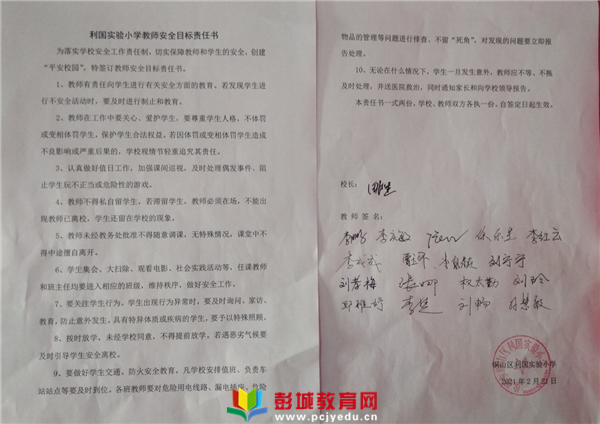 利国实验小学教师安全目标责任书
为落实学校安全工作责任制，切实保障教师和学生的安全，创建
“平安校园”，特签订教师安全目标责任书。
1、教师有责任向学生进行有关安全方面的教育，若发现学生进
行不安全活动时，要及时进行制止和教育。
2、教师在工作中要关心、爱护学生，要尊重学生人格，不体罚
或变相体罚学生，保护学生合法权益，若因体罚或变相体罚学生造成
不良影响或严重后果的，学校视情节轻重追究其责任。
3、认真做好值日工作，加强课间巡视，及时处理偶发事件，阻
止学生玩不正当或危险性的游戏。
4、教师不得私自留学生，若滞留学生，教师必须在场，不能出
现教师已离校，学生还留在学校的现象。
5、教师未经教务处批准不得随意调课，无特殊情况，课堂中不
得中途擅自离开。
6、学生集会、大扫除、观看电影、社会实践活动等，任课教师
和班主任均要进入相应的班级，维持秩序，做好安全工作。
7、要关注学生行为，学生出现行为异常时，要及时询问、家访、
教育，防止意外发生。具有特异体质或疾病的学生，要予以特殊照顾。
8、按时放学，未经学校同意，不得提前放学，若遇恶劣气候要
及时引导学生安全离校。
9、要做好学生交通、防火安全教育，凡学校安排值班、负责车
站站点等要及时到位。各班教师要对危险用电线路、漏电插座、危险
物品的管理等问题进行排查，不留“死角”，对发现的问题要立即报
告处理。
10、无论在什么情况下，学生一旦发生意外，教师应不等、不拖
及时处理，并送医院救治，同时通知家长和向学校领导报告。
本责任书一式两份，学校、教师双方各执一份，自签定日起生效。
校长：
教师签名：
李红云
刘孝梅 权太勤 刘玲
李楚 刘畅
铜山区利国实验小学
2021年2月21日
彭城教育网
www.pcjyedu.cn